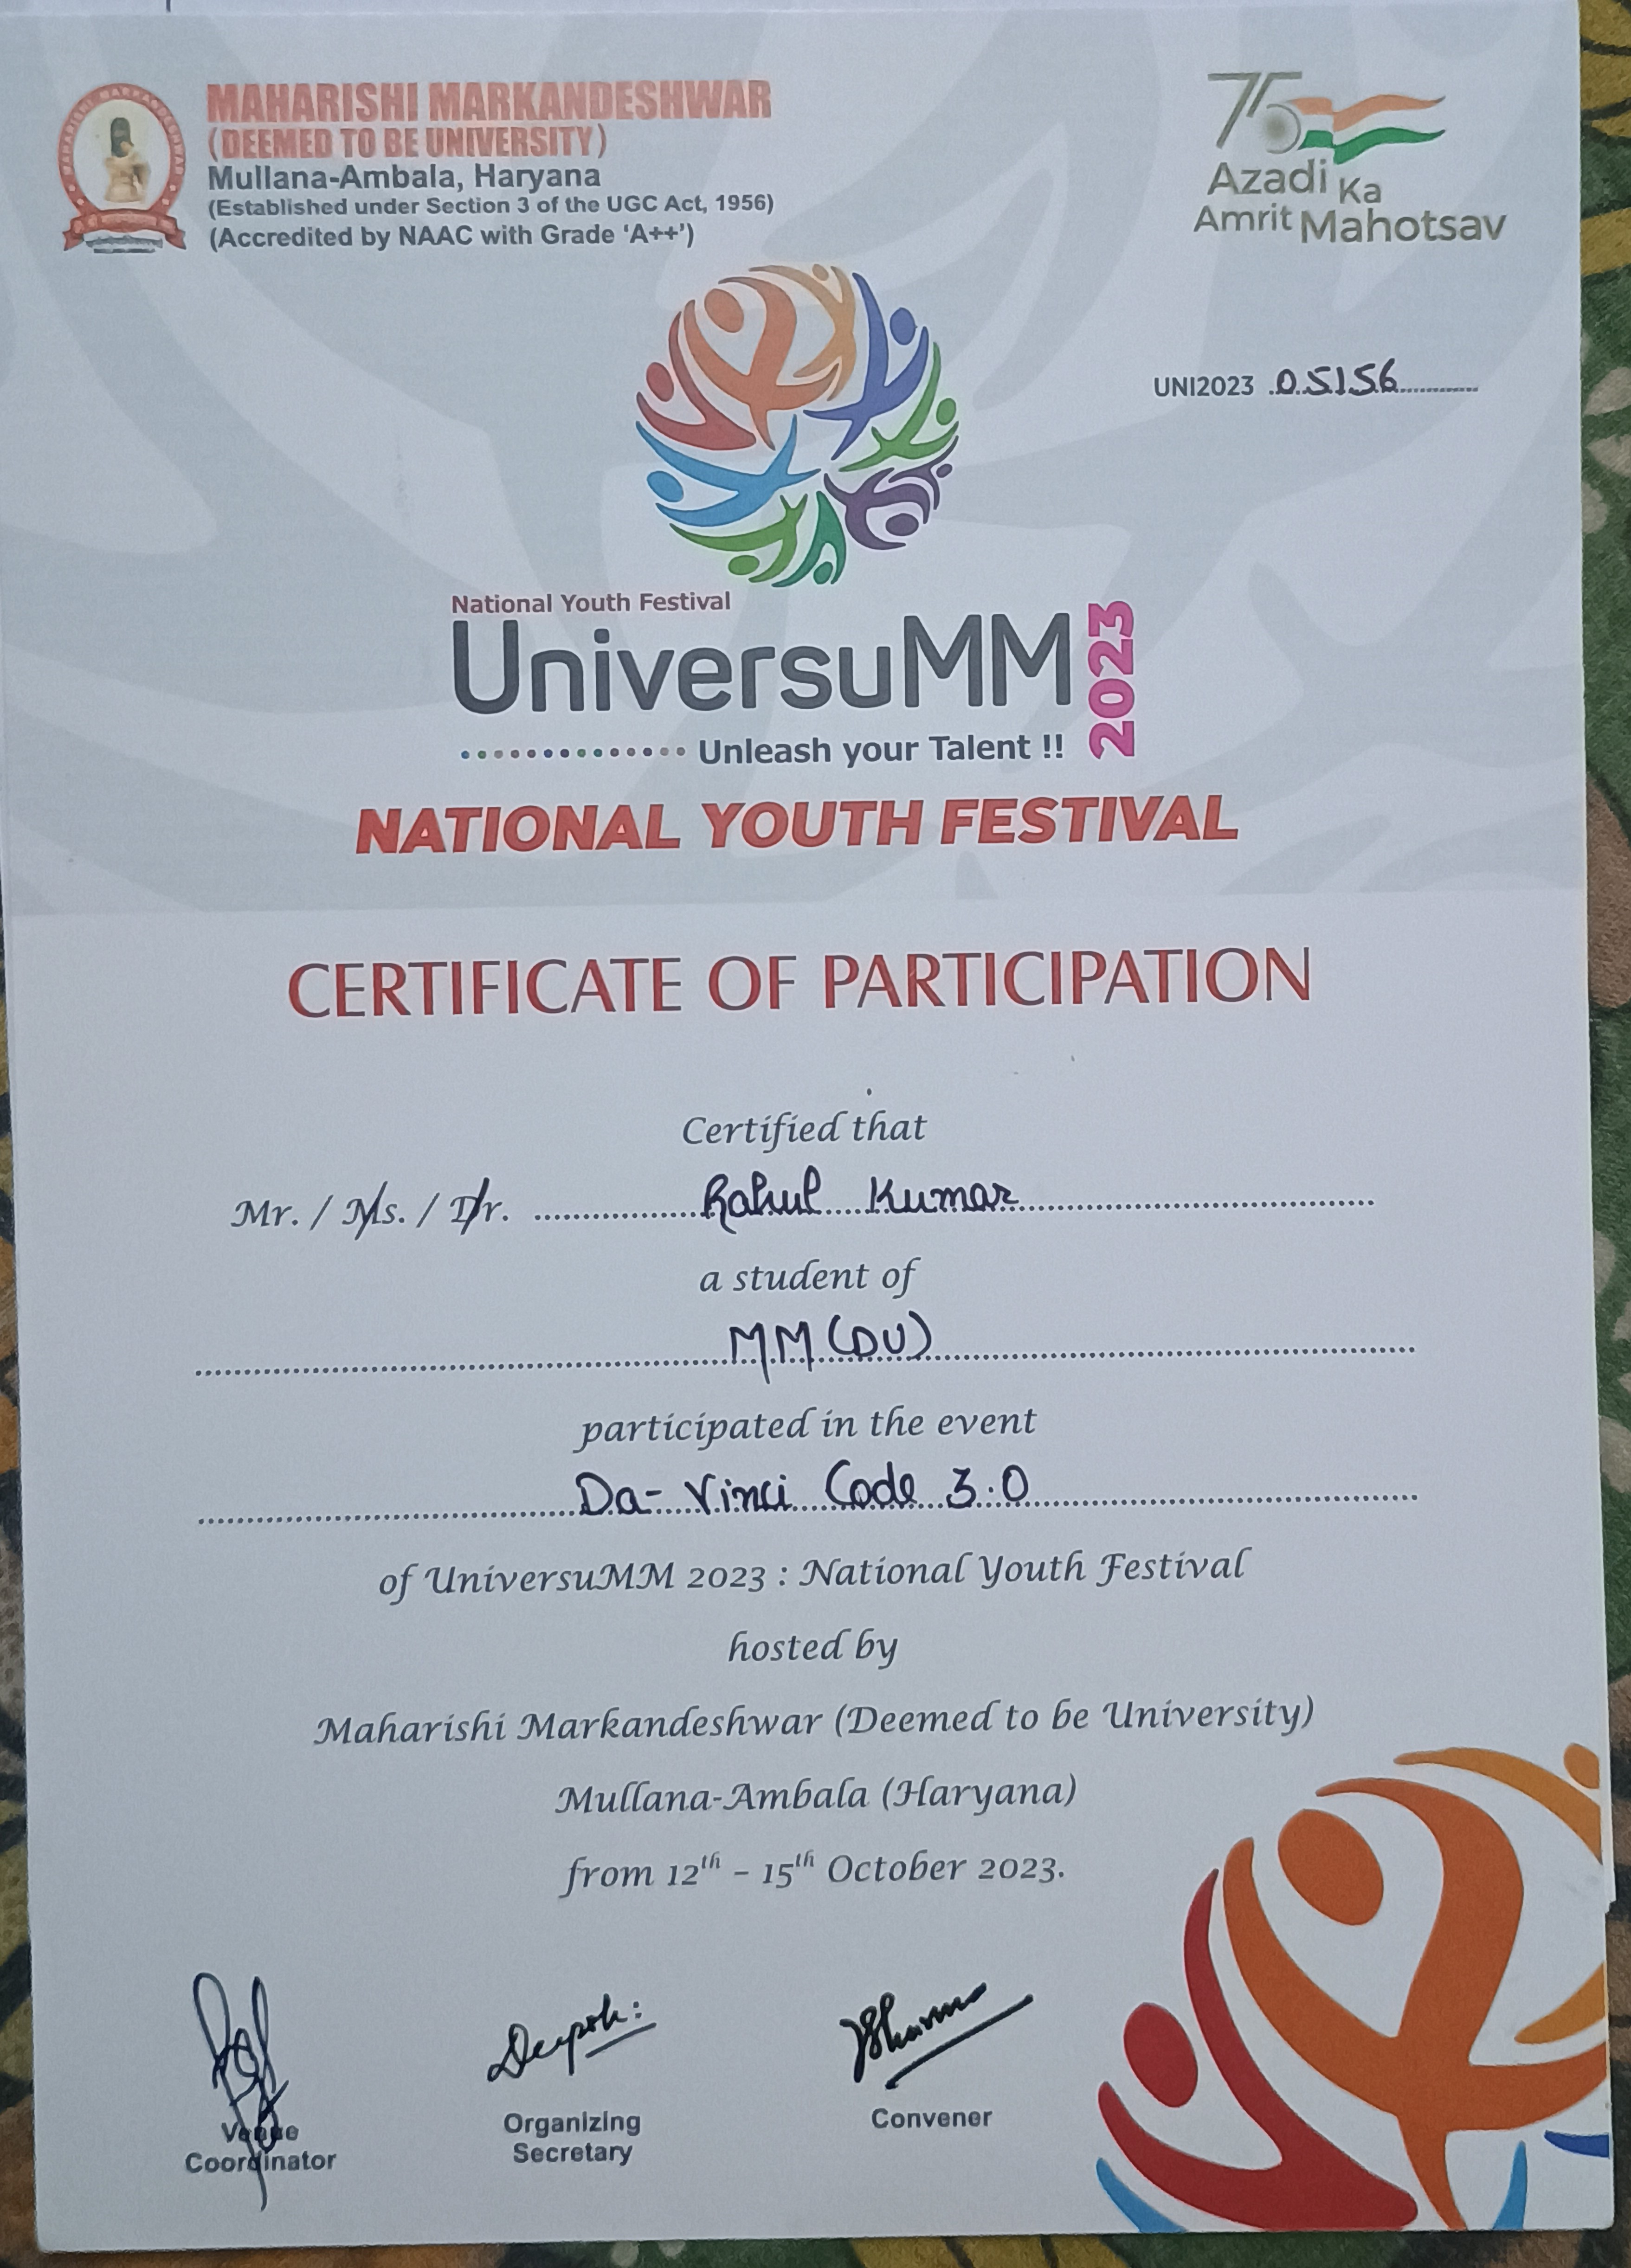 MAHARISHI MARKANDESHWAR
(DEEMED TO BE UNIVERSITY)
Mullana-Ambala, Haryana
(Established under Section 3 of the UGC Act, 1956)
(Accredited by NAAC with Grade ‘A++’)
75
Azadi Ka
Amrit Mahotsav
UNI2023 05156
National Youth Festival
UniversuMM 2023
Unleash your Talent !!
NATIONAL YOUTH FESTIVAL
CERTIFICATE OF PARTICIPATION
Certified that
Mr. / Ms. / Dr. Rahul Kumar
a student of
MM(DU)
participated in the event
Da-Vinci Code 3.0
of UniversuMM 2023 : National Youth Festival
hosted by
Maharishi Markandeshwar (Deemed to be University)
Mullana-Ambala (Haryana)
from 12th – 15th October 2023.
Deepak
Sharma
Venue
Coordinator
Organizing
Secretary
Convener